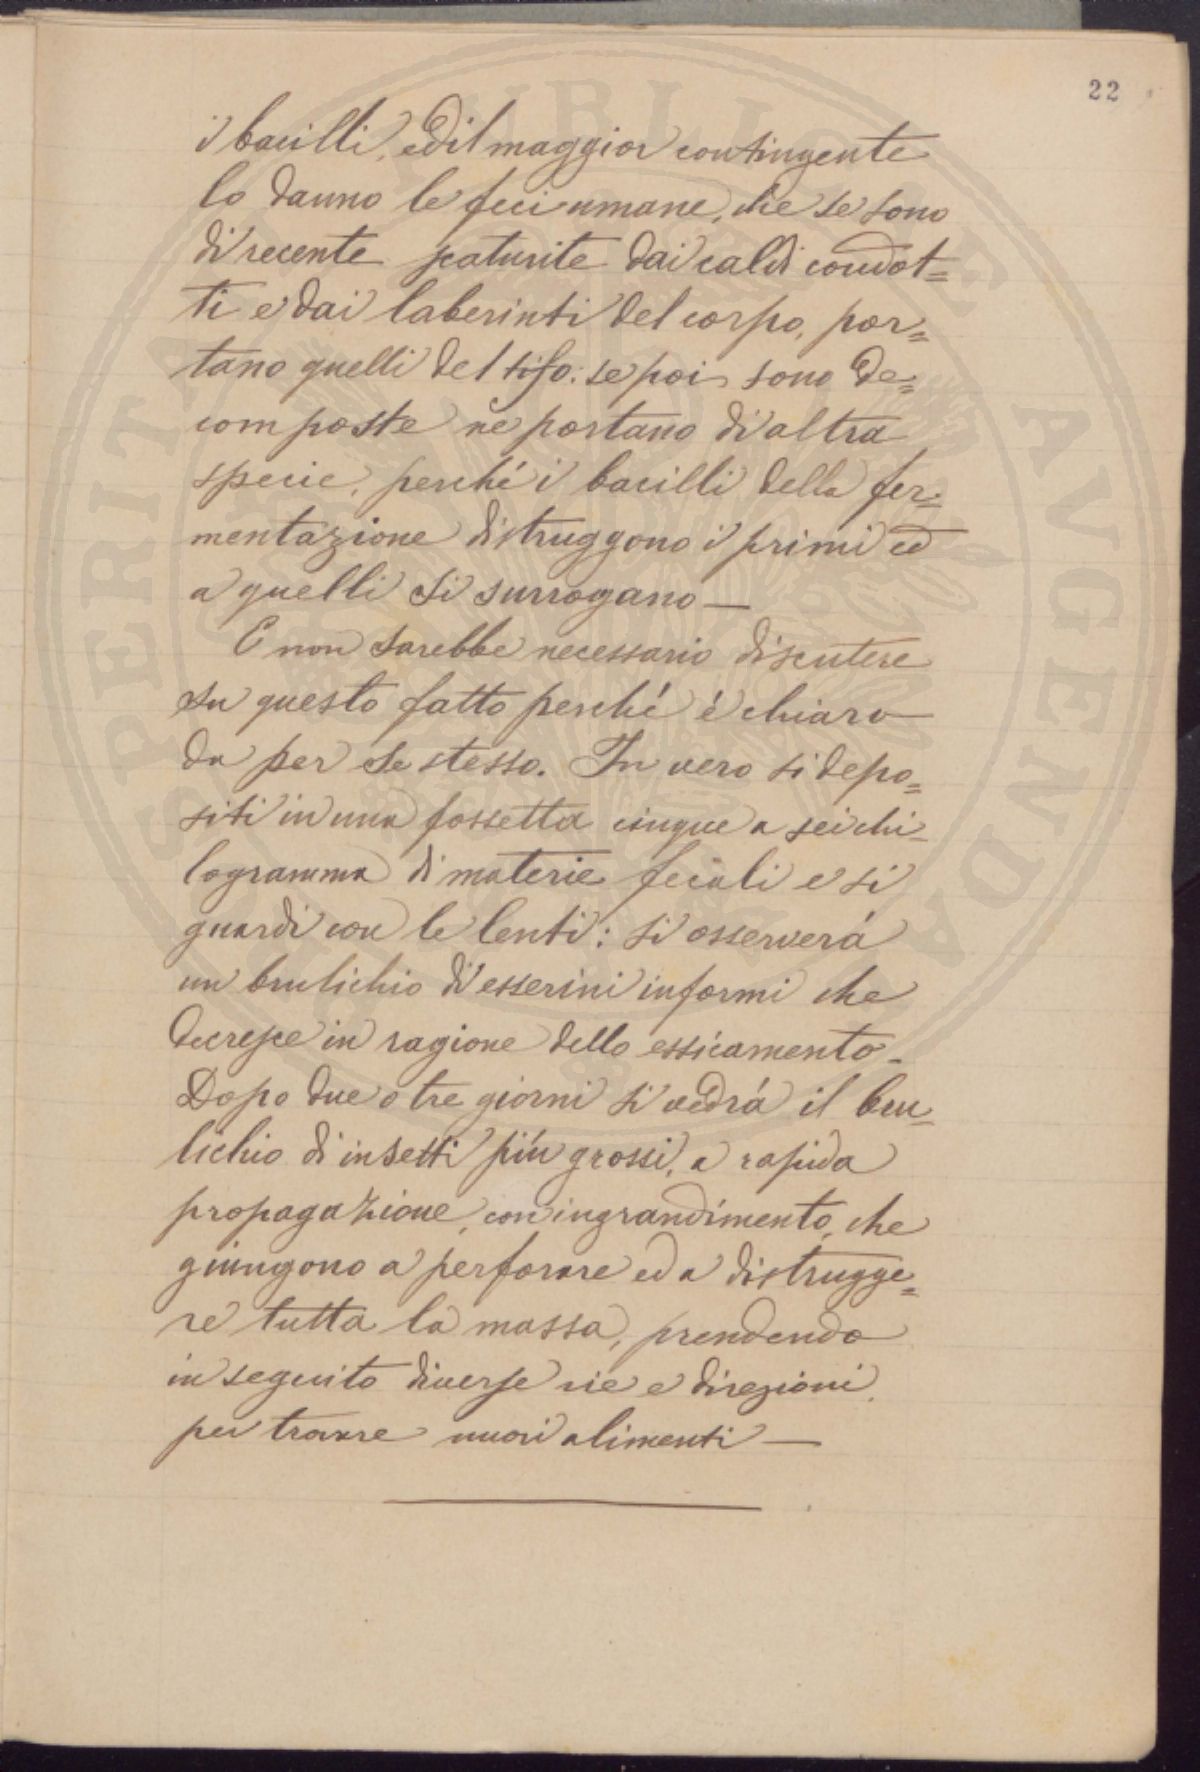 22
i bacilli, ed il maggior contingente
lo danno le feci umane, che se sono
di recente scaturite dai caldi condot=
ti e dai laberinti del corpo, por=
tano quelli del tifo: se poi sono de=
composte ne portano di altra
specie, perché i bacilli della fer=
mentazione distruggono i primi ed
a quelli si surrogano —
E non sarebbe necessario discutere
su questo fatto perché é chiaro
da per se stesso. In vero si depo=
siti in una fossetta cinque a sei chi=
logramma di materie fecali e si
guardi con le lenti: si osserverá
un brulichio di esserini informi che
decresce in ragione dello essicamento.
Dopo due o tre giorni si vedrá il bru=
lichio di insetti piú grossi, a rapida
propagazione, con ingrandimento, che
giungono a perforare ed a distrugge=
re tutta la massa, prendendo
in seguito diverse vie e direzioni,
per trovare nuovi alimenti —
PUBLICAE
PROSPERITATI
AVGENDAE